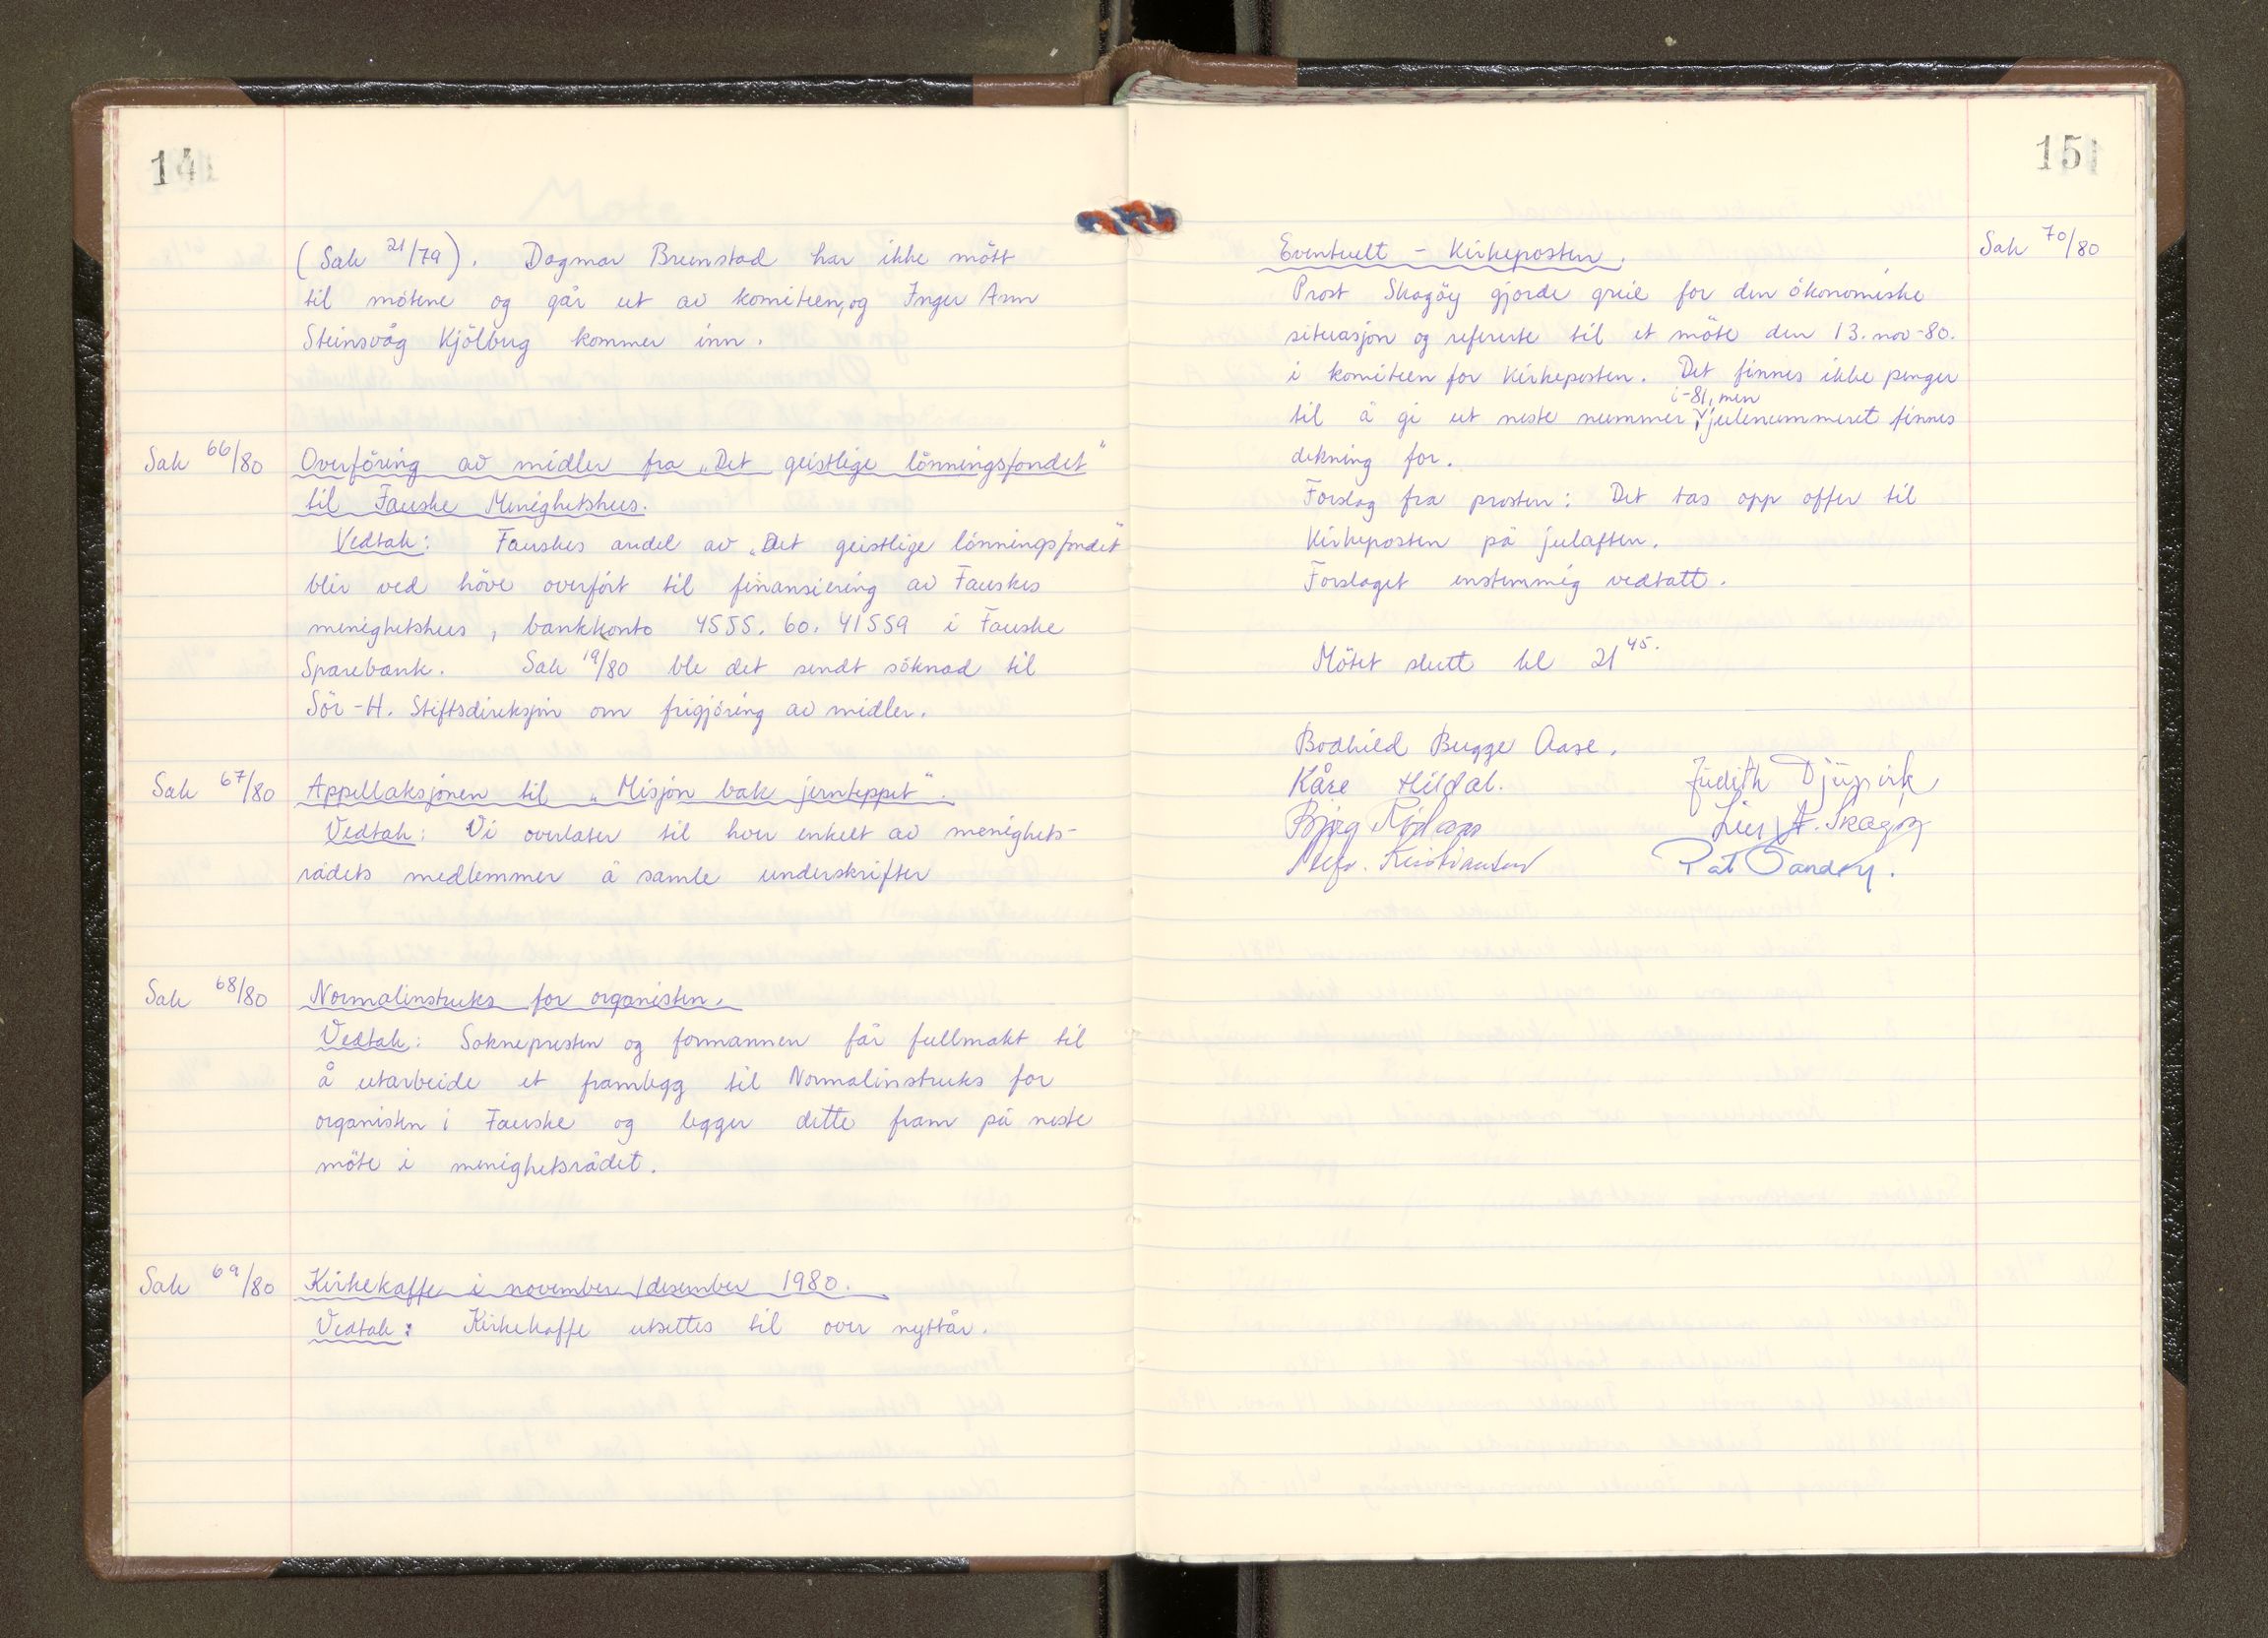 14
(Sak 21/79). Dagmar Brunstad har ikke mött
til mötene og går ut av komiteen, og Inger Ann
Steinsvåg Kjölberg kommer inn.
Sak 66/80 Overföring av midler fra „Det geistlige lönningsfondet"
til Fauske Menighetshus.
Vedtak: Fauskes andel av „Det geistlige lönningsfondet"
blir ved höve overfört til finansiering av Fauskes
menighetshus, bankkonto 4555.60.41559 i Fauske
Sparebank. Sak 19/80 ble det sendt söknad til
Sör-H. Stiftsdireksjon om frigjöring av midler.
Sak 67/80 Appellaksjonen til „Misjon bak jernteppet".
Vedtak: Vi overlater til hver enkelt av menighets-
rådets medlemmer å samle underskrifter
Sak 68/80 Normalinstruks for organisten.
Vedtak: Soknepresten og formannen får fullmakt til
å utarbeide et framlegg til Normalinstruks for
organisten i Fauske og legger dette fram på neste
möte i menighetsrådet.
Sak 69/80 Kirkekaffe i november/desember 1980.
Vedtak: Kirkekaffe utsettes til over nyttår.
15
Eventuelt - Kirkeposten. Sak 70/80
Prost Skagöy gjorde greie for den ökonomiske
situasjon og refererte til et möte den 13. nov-80.
i komiteen for Kirkeposten. Det finnes ikke penger
i-81, men
til å gi ut neste nummer, julenummeret finnes
dekning for.
Forslag fra prosten: Det tas opp offer til
Kirkeposten på julaften.
Forslaget enstemmig vedtatt.
Mötet slutt kl 21 45.
Bodhild Bugge Aase.
Kåre Hildal. Judith Djupvik
Bjørg A. Skagöy
Kristiansen Pat Sandöy.